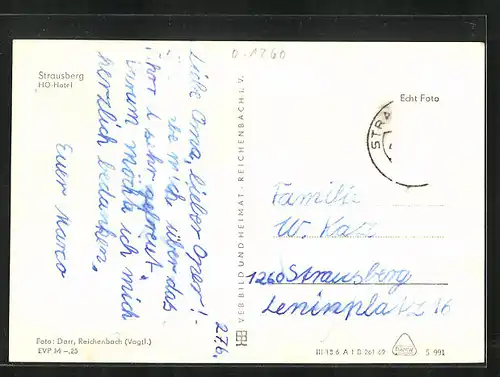 0-1260
Strausberg
HO-Hotel
Echt Foto
STRA
27.6.
Liebe Oma, lieber Oper!-
habe mich über das
sehr gefreut.
Darum möchte ich mich
herzlich bedanken.
Euer Marco
VEB BILD UND HEIMAT · REICHENBACH I. V.
Familie
W. Katz
1260 Strausberg
Leninplatz 16
Foto: Darr, Reichenbach (Vogtl.)
EVP M –,25
III 18 6 A 1 B 261 69
S 991